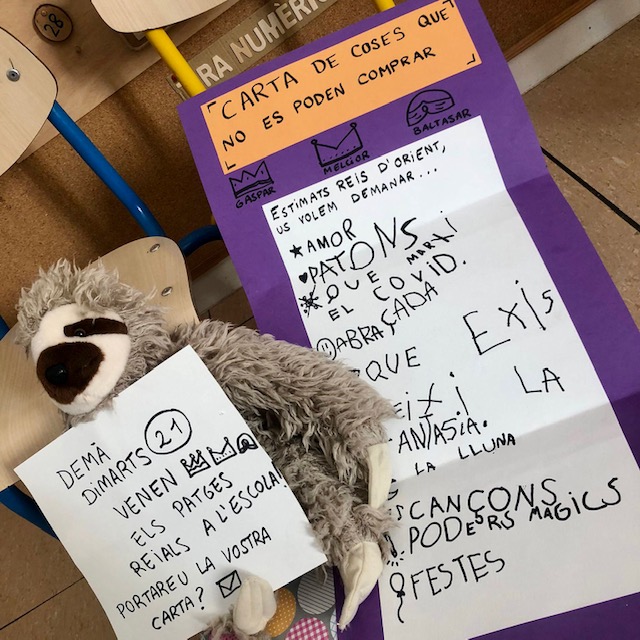 28
RA NUMÈRIC
CARTA DE COSES QUE
NO ES PODEN COMPRAR
GASPAR
MELCIOR
BALTASAR
ESTIMATS REIS D'ORIENT,
US VOLEM DEMANAR...
AMOR
PATONS
QUE MARXI
EL COVID.
ABRAÇADA
QUE EXIS
EIXI LA
ANTASIA.
LA LLUNA
CANÇONS
PODERS MÀGICS
FESTES
DEMÀ
DIMARTS 21
VENEN
ELS PATGES
REIALS A L'ESCOLA!
PORTAREU LA VOSTRA
CARTA?